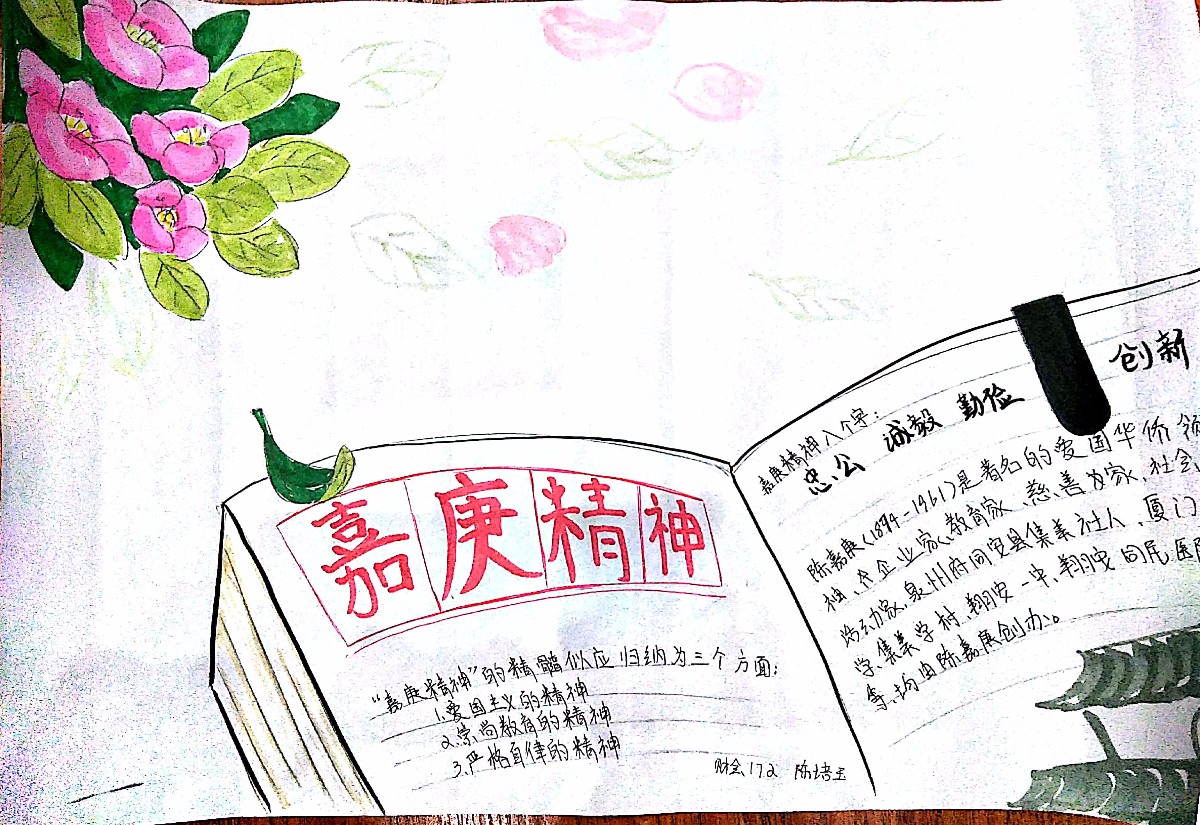 嘉庚精神
“嘉庚精神”的精髓似应归纳为三个方面:
1.爱国主义的精神
2.崇尚教育的精神
3.严格自律的精神
财会172 陈培玉
嘉庚精神八个字:
忠公 诚毅 勤俭 创新
陈嘉庚(1894-1961)是著名的爱国华侨领
袖、企业家、教育家、慈善家、社会
活动家,泉州府同安县集美社人、厦门
学、集美学村、翔安一中、翔安同民医院
等,均由陈嘉庚创办。